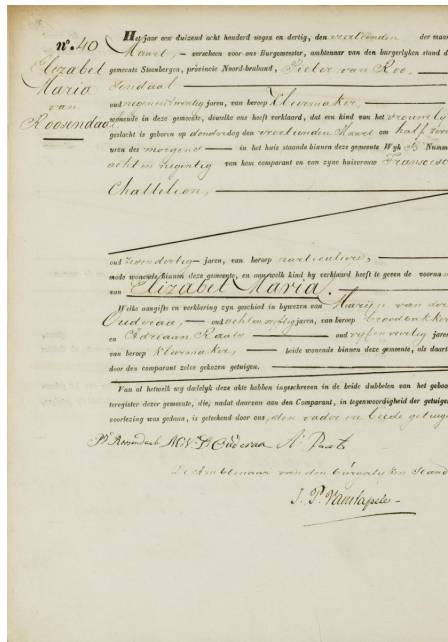 N°. 40
Elizabet
Maria
van
Roosendaal
Het jaar een duizend acht honderd negen en dertig, den veertienden der maa
Maart, — verscheen voor ons Burgemeester, ambtenaar van den burgerlyken stand d
gemeente Steenbergen, provincie Noord-braband, Pieter van Roo-
sendaal
oud negenentwintig jaren, van beroep kleermaker,
wonende in deze gemeente, dewelke ons heeft verklaard, dat een kind van het vrouwely
geslacht is geboren op donderdag den veertienden Maart om half zeve
uren des morgens — in het huis staande binnen deze gemeente Wyk B Numm
acht en negentig van hem comparant en van zyne huisvrouw Francisc
Chatteleon,
oud jaren, van beroep particuliere,
mede wonende binnen deze gemeente, en aan welk kind hy verklaard heeft te geven de voorna
van Elizabet Maria.
Welke aangifte en verklaring zyn geschied in bywezen van Maryn van der
Ouderaa, — oud jaren, van beroep broodbakker
en Adriaan Raats — oud vyfenveertig jaren
van beroep kleermaker, — beide wonende binnen deze gemeente, als daart
door den comparant zelve gekozen getuigen.
Van al hetwelk wy dadelyk deze akte hebben ingeschreven in de beide dubbelen van het geboo
teregister dezer gemeente, die, nadat daarvan aan den Comparant, in tegenwoordigheid der getuige
voorlezing was gedaan, is geteekend door ons, den vader en beide getuige
Pr Roosendaal M. V. D Ouderaa A: Raats
De Ambtenaar van den burgerlyken Stand
J. P. Vanstapele